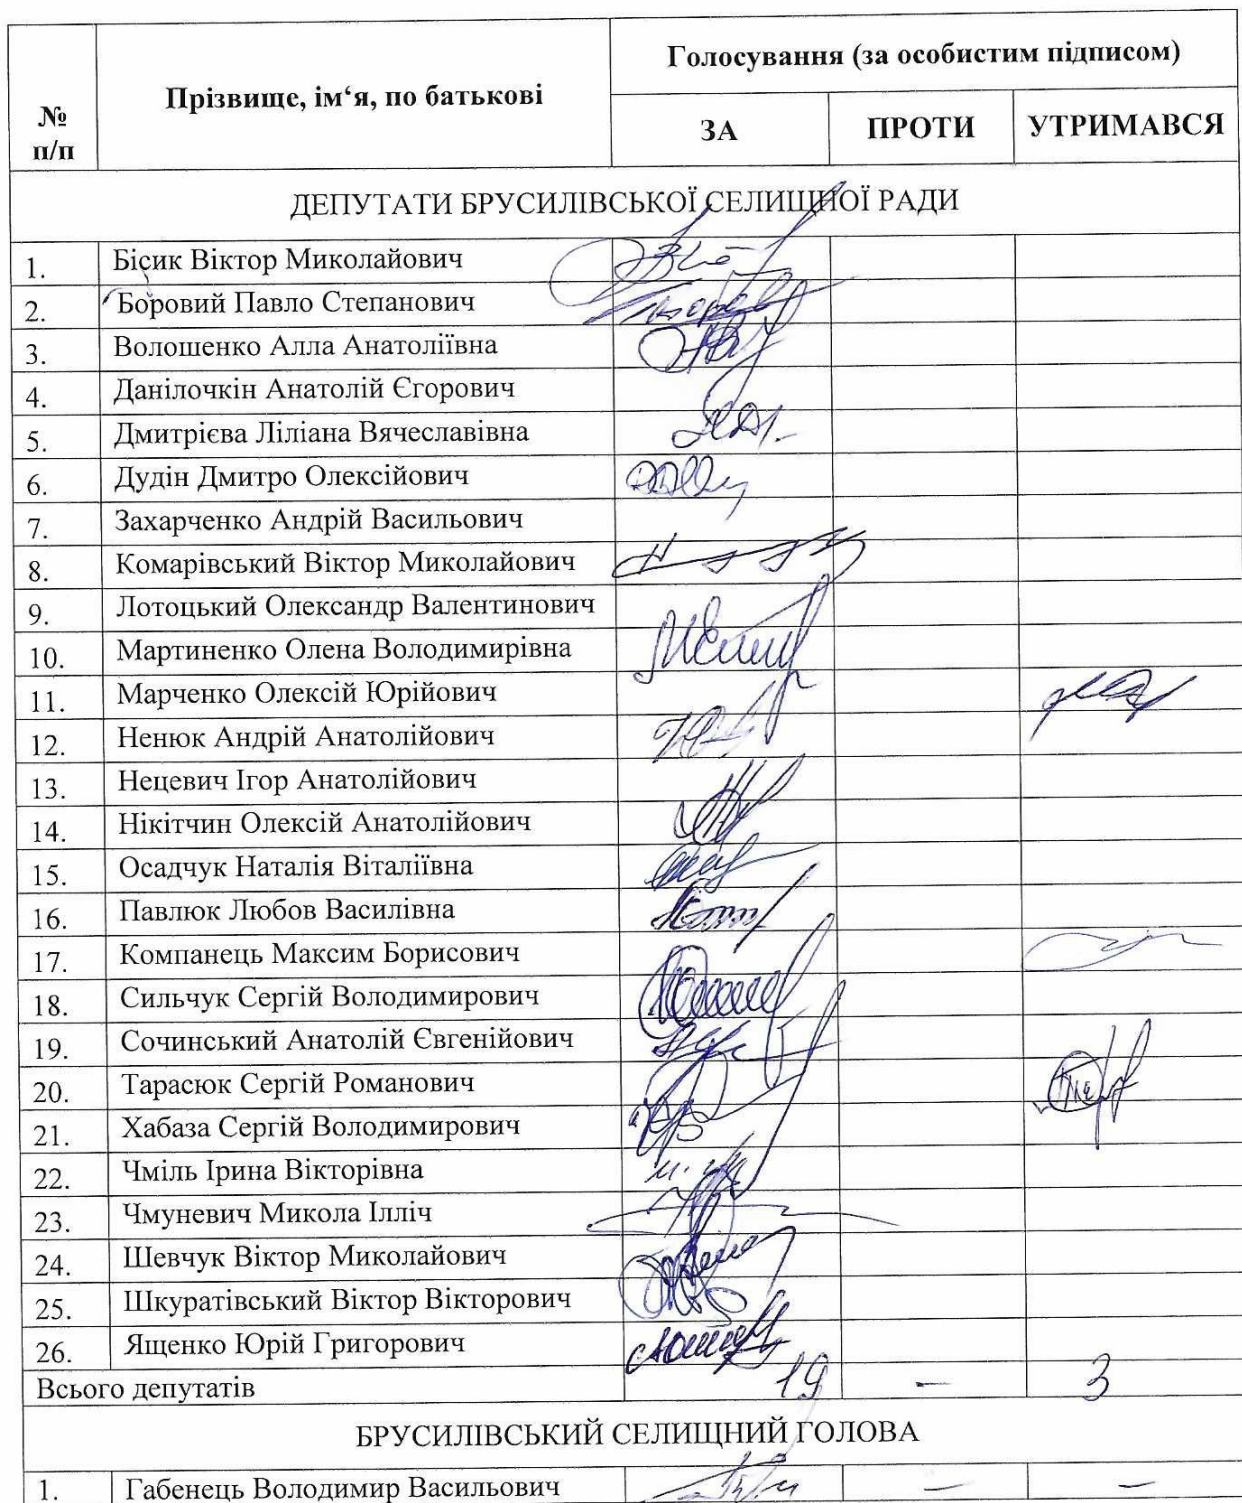 № п/п Прізвище, ім‘я, по батькові Голосування (за особистим підписом)
ЗА ПРОТИ УТРИМАВСЯ
ДЕПУТАТИ БРУСИЛІВСЬКОЇ СЕЛИЩНОЇ РАДИ
1. Бісик Віктор Миколайович
2. Боровий Павло Степанович
3. Волошенко Алла Анатоліївна
4. Данілочкін Анатолій Єгорович
5. Дмитрієва Ліліана Вячеславівна
6. Дудін Дмитро Олексійович
7. Захарченко Андрій Васильович
8. Комарівський Віктор Миколайович
9. Лотоцький Олександр Валентинович
10. Мартиненко Олена Володимирівна
11. Марченко Олексій Юрійович
12. Ненюк Андрій Анатолійович
13. Нецевич Ігор Анатолійович
14. Нікітчин Олексій Анатолійович
15. Осадчук Наталія Віталіївна
16. Павлюк Любов Василівна
17. Компанець Максим Борисович
18. Сильчук Сергій Володимирович
19. Сочинський Анатолій Євгенійович
20. Тарасюк Сергій Романович
21. Хабаза Сергій Володимирович
22. Чміль Ірина Вікторівна
23. Чмуневич Микола Ілліч
24. Шевчук Віктор Миколайович
25. Шкуратівський Віктор Вікторович
26. Ященко Юрій Григорович
Всього депутатів 19 – 3
БРУСИЛІВСЬКИЙ СЕЛИЩНИЙ ГОЛОВА
1. Габенець Володимир Васильович – –